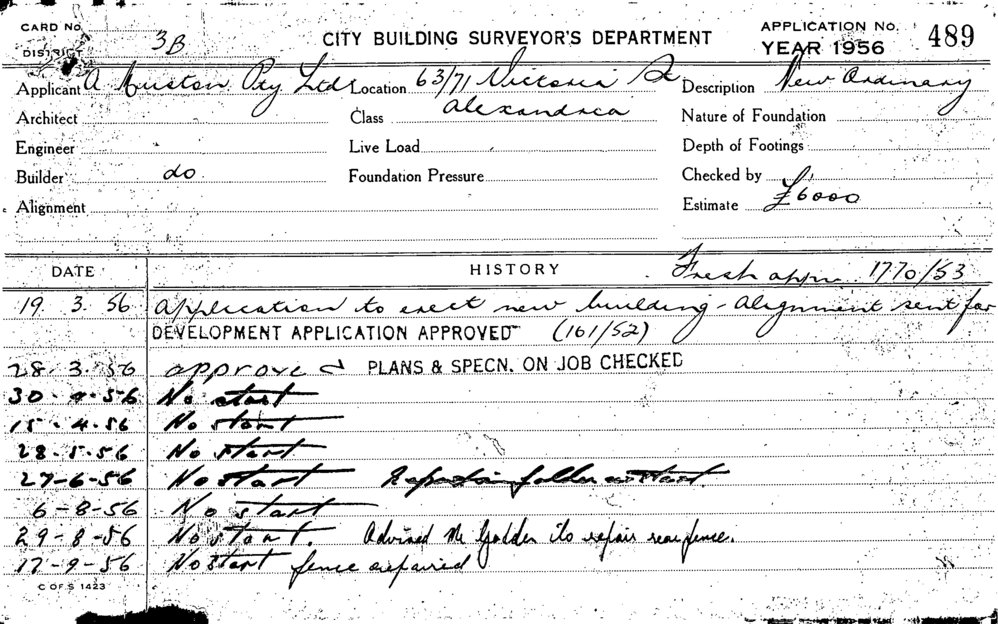 CARD No. CITY BUILDING SURVEYOR'S DEPARTMENT APPLICATION No. 489
DISTRICT 3B YEAR 1956
Applicant A Muston Pty Ltd Location 63/71 Victoria St Description New Ordinary
Architect Class Alexandria Nature of Foundation
Engineer Live Load Depth of Footings
Builder do. Foundation Pressure Checked by
Alignment Estimate £6000
DATE HISTORY Fresh appn. 1770/53
19. 3. 56 Application to erect new building - Alignment sent for
DEVELOPMENT APPLICATION APPROVED (161/52)
28. 3. 56 approved PLANS & SPECN. ON JOB CHECKED
30-4-56 No start
15-4-56 No start
28-5-56 No start
27-6-56 No start
6-8-56 No start
29-8-56 No start. Advised Mr to repair rear fence.
17-9-56 No start fence repaired
C OF S 1423